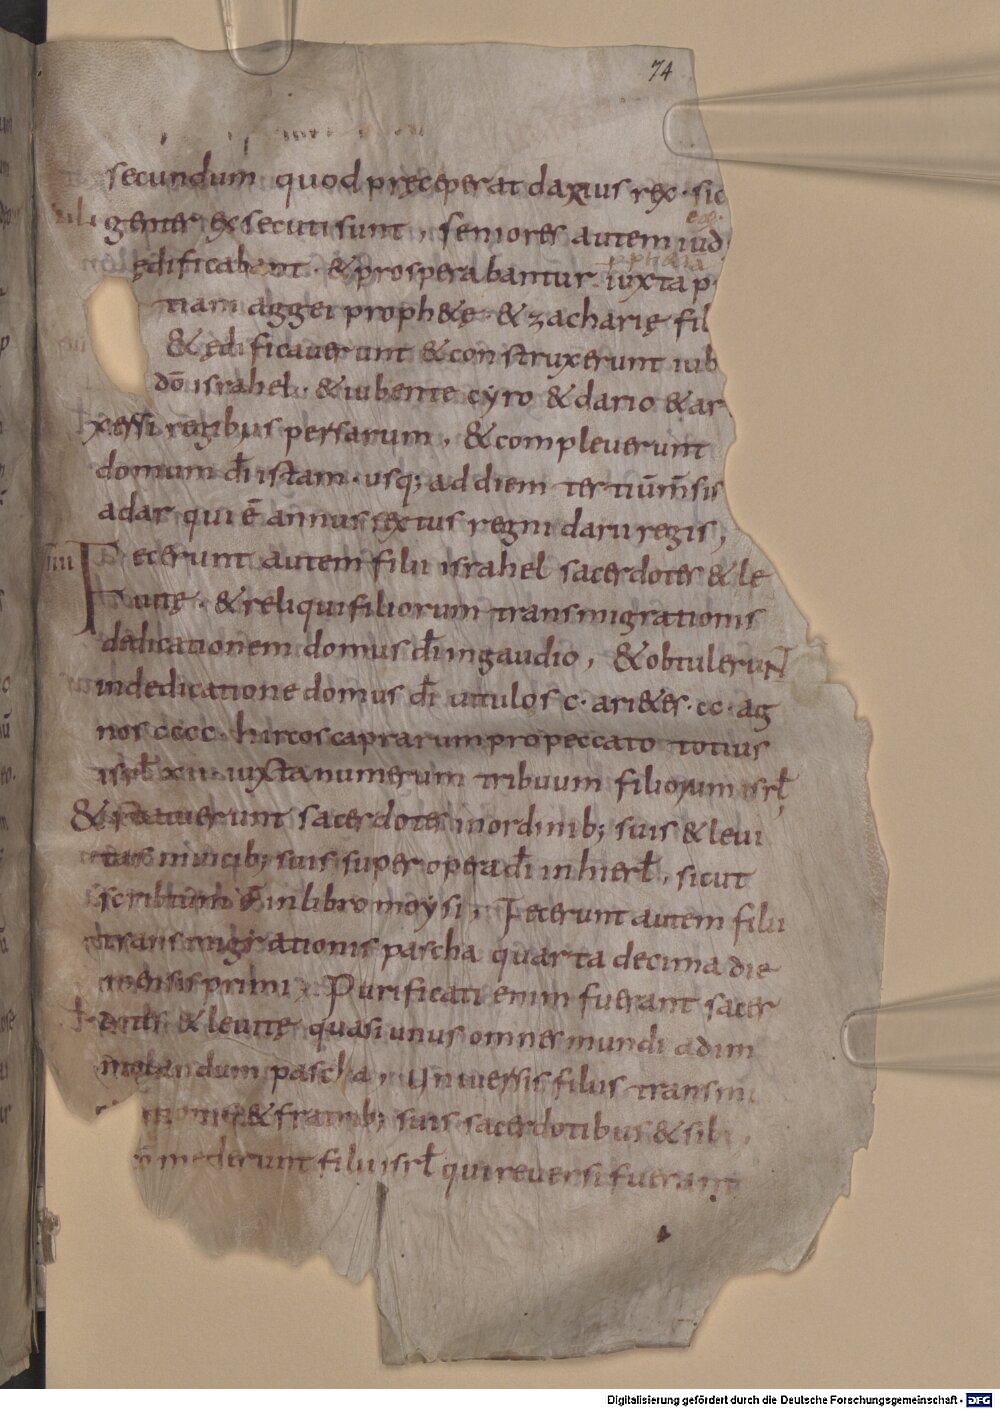 74
secundum quod pręceperat darius rex · sic
genter exsecuti sunt, seniores autem iud
ędificabant · & prosperabantur iuxta p
tiam aggei proph&ę & zacharię fil
& ędificauerunt & construxerunt iub
dō israhel · & iubente cyro & dario & ar
xessi regibus persarum, & compleuerunt
domum dī istam · usq; ad diem tertiū m̄sis
adar qui ē annus sextus regni darii regis,
Fecerunt autem filii israhel sacerdotes & le
uitę · & reliqui filiorum transmigrationis
dedicationem domus dī in gaudio, & obtulerunt
in dedicatione domus dī uitulos c · ari&es · cc · ag
nos cccc · hircos caprarum pro peccato totius
isrł xii · iuxta numerum tribuum filiorum isrł,
& statuerunt sacerdotes in ordinib; suis & leui
tas in uicib; suis super opera dī in hierł, sicut
scribtum ē in libro moysi, Fecerunt autem filii
transmigrationis pascha quarta decima die
mensis primi, Purificati enim fuerant sacer
dotes & leuitę quasi unus omnes mundi ad im
molandum pascha, Uniuersis filiis transmi
tionis & fratrib; suis sacerdotibus & sibi,
mederunt filii isrł qui reuersi fuerant
Digitalisierung gefördert durch die Deutsche Forschungsgemeinschaft - DFG